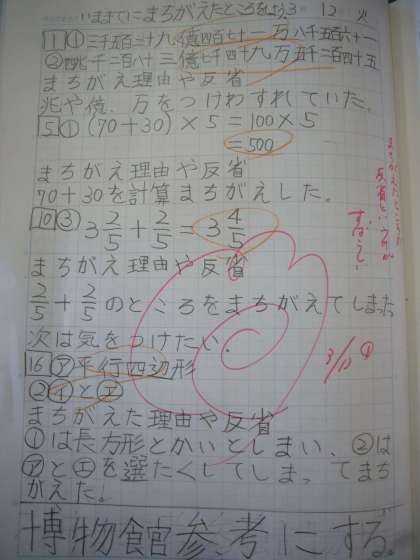 いままでにまちがえたところをしよう3 12 火
1 ① 三千五百二十九億四百七十一万八千五百六十一
② 四兆千二百八十三億七千四十九万五千二百四十五
まちがえ理由や反省
兆や億、万をつけわすれていた。
5 ① (70+30)×5=100×5
=500
まちがえ理由や反省
70+30を計算まちがえした。
10 ③ 3 2/5 + 2/5 = 3 4/5
まちがえ理由や反省
2/5 + 2/5 のところをまちがえてしまった
次は気をつけたい.
16 ㋐平行四辺形
② ㋑と㋓
まちがえた理由や反省
①は長方形とかいとしまい、②は
㋐と㋓を選たくしてしまってまち
がえた。
博物館参考にする。
まちがえたところの
反省という所が
すばらしい
3/13